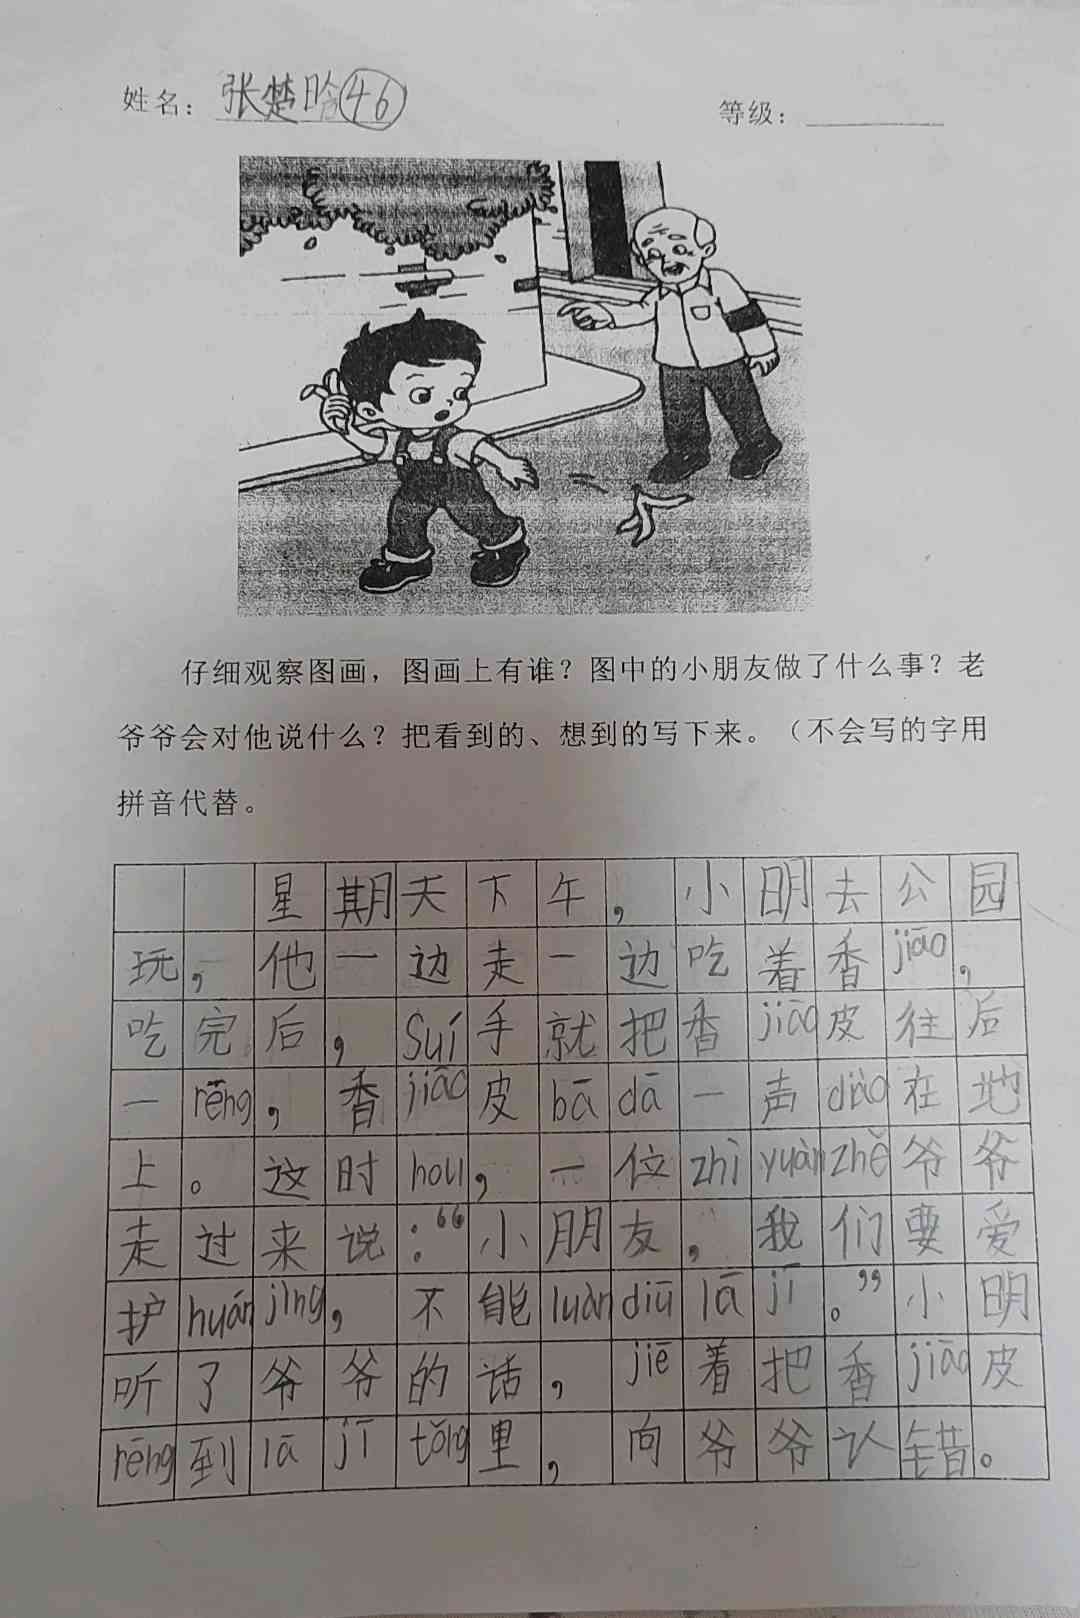 姓名：张楚晗 46 等级：
仔细观察图画，图画上有谁？图中的小朋友做了什么事？老
爷爷会对他说什么？把看到的、想到的写下来。（不会写的字用
拼音代替。
星期天下午，小明去公园
玩，他一边走一边吃着香jiāo，
吃完后，Suí手就把香jiāo皮往后
一rēng，香jiāo皮bā dā一声diào在地
上。这时hou，一位zhì yuàn zhě爷爷
走过来说：“小朋友，我们要爱
护huán jìng，不能luàn diū lā jī。”小明
听了爷爷的话，jiē着把香jiāo皮
rēng到lā jī tǒng里，向爷爷认错。